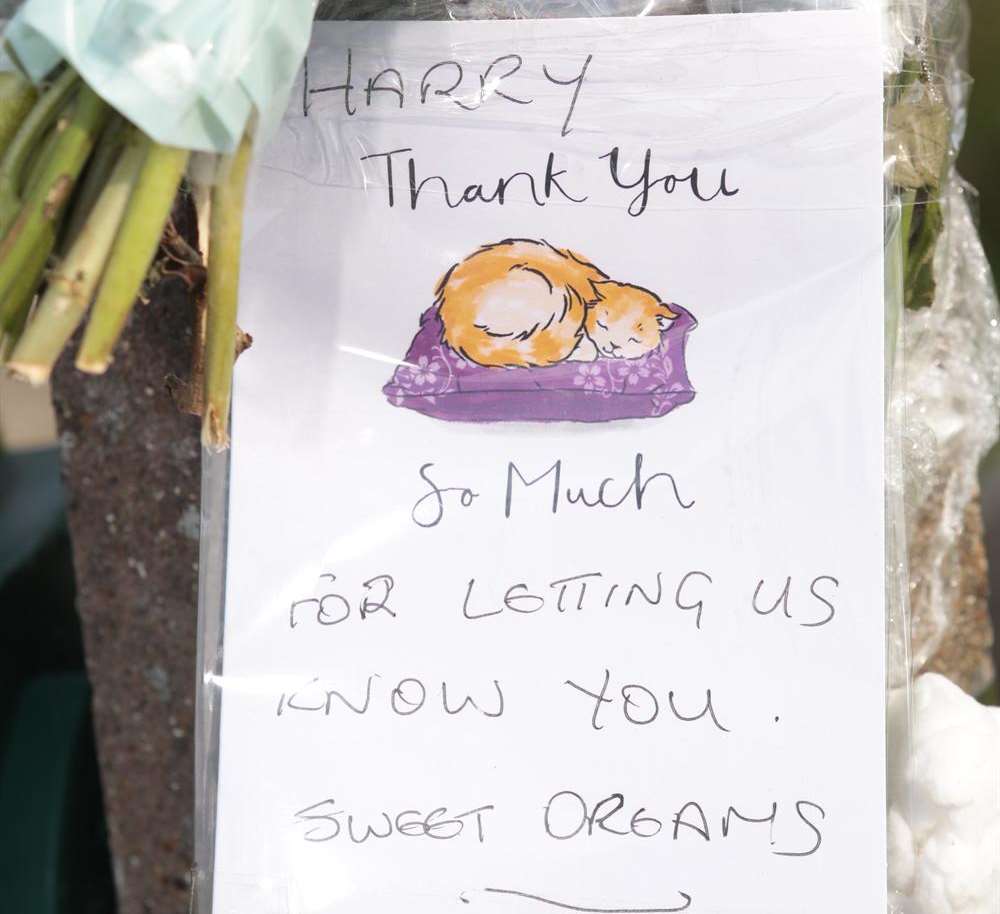 HARRY
Thank You
So Much
FOR LETTING US
KNOW YOU.
SWEET DREAMS